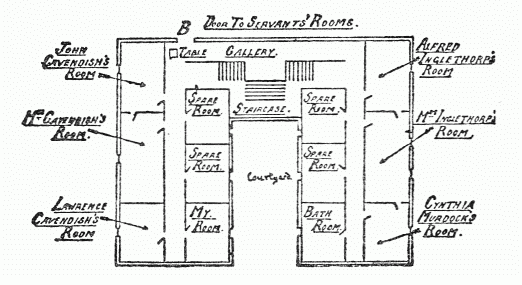 B DOOR TO SERVANTS' ROOMS.
JOHN
CAVENDISH'S
ROOM
TABLE GALLERY.
ALFRED
INGLETHORP'S
ROOM
MRS CAVENDISH'S
ROOM.
SPARE
ROOM.
STAIRCASE.
SPARE
ROOM.
MRS INGLETHORP'S
ROOM.
SPARE
ROOM.
Courtyard
SPARE
ROOM.
LAWRENCE
CAVENDISH'S
ROOM
MY
ROOM.
BATH
ROOM
CYNTHIA
MURDOCK'S
ROOM.